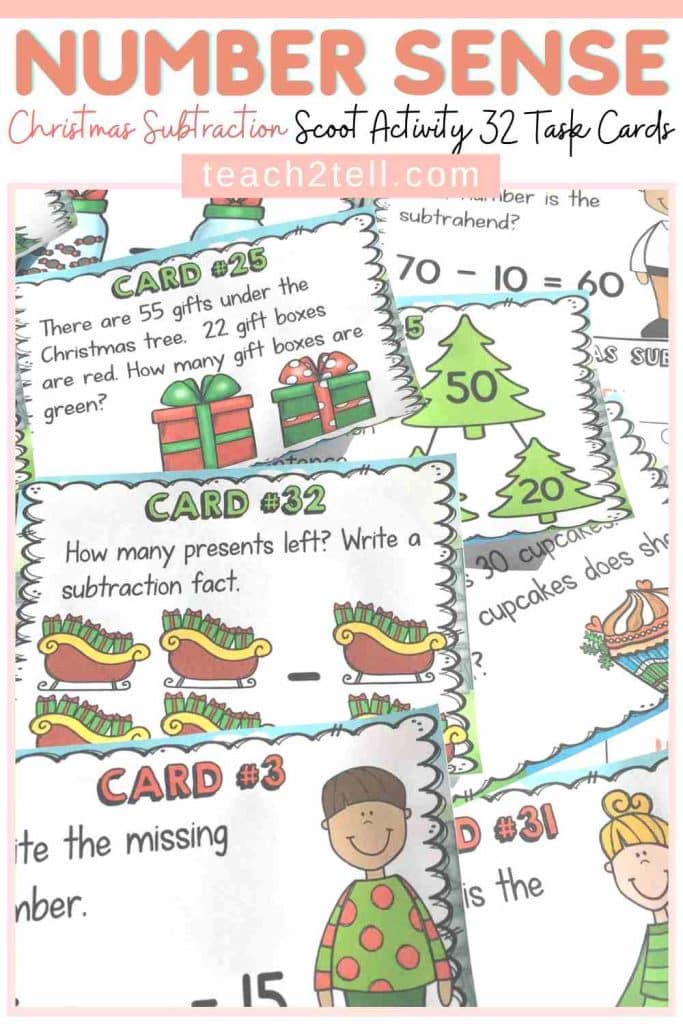 NUMBER SENSE
Christmas Subtraction Scoot Activity 32 Task Cards
teach2tell.com
is the
subtrahend?
70 - 10 = 60
CARD #25
There are 55 gifts under the
Christmas tree. 22 gift boxes
are red. How many gift boxes are
green?
5
50
20
CARD #32
How many presents left? Write a
subtraction fact.
-
30 cupcakes
cupcakes does
?
CARD #3
the missing
- 15
#31
is the